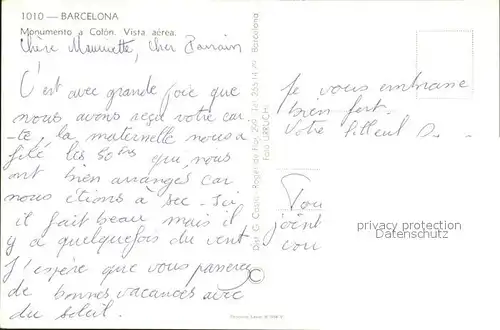 1010 — BARCELONA
Monumento a Colón. Vista aérea.
Chère Mauricette, cher Parrain
C'est avec grande joie que
nous avons reçu votre car
-te, la maternelle nous a
filé les 50 qui nous
ont bien arrangés car
nous étions à sec. Ici
il fait beau mais il
y a quelquefois du vent
J'espère que vous passerez
de bonnes vacances avec
du soleil.
Je vous embrasse
bien fort.
Votre filleul
Tou
joint
vou
privacy protection
Datenschutz
©